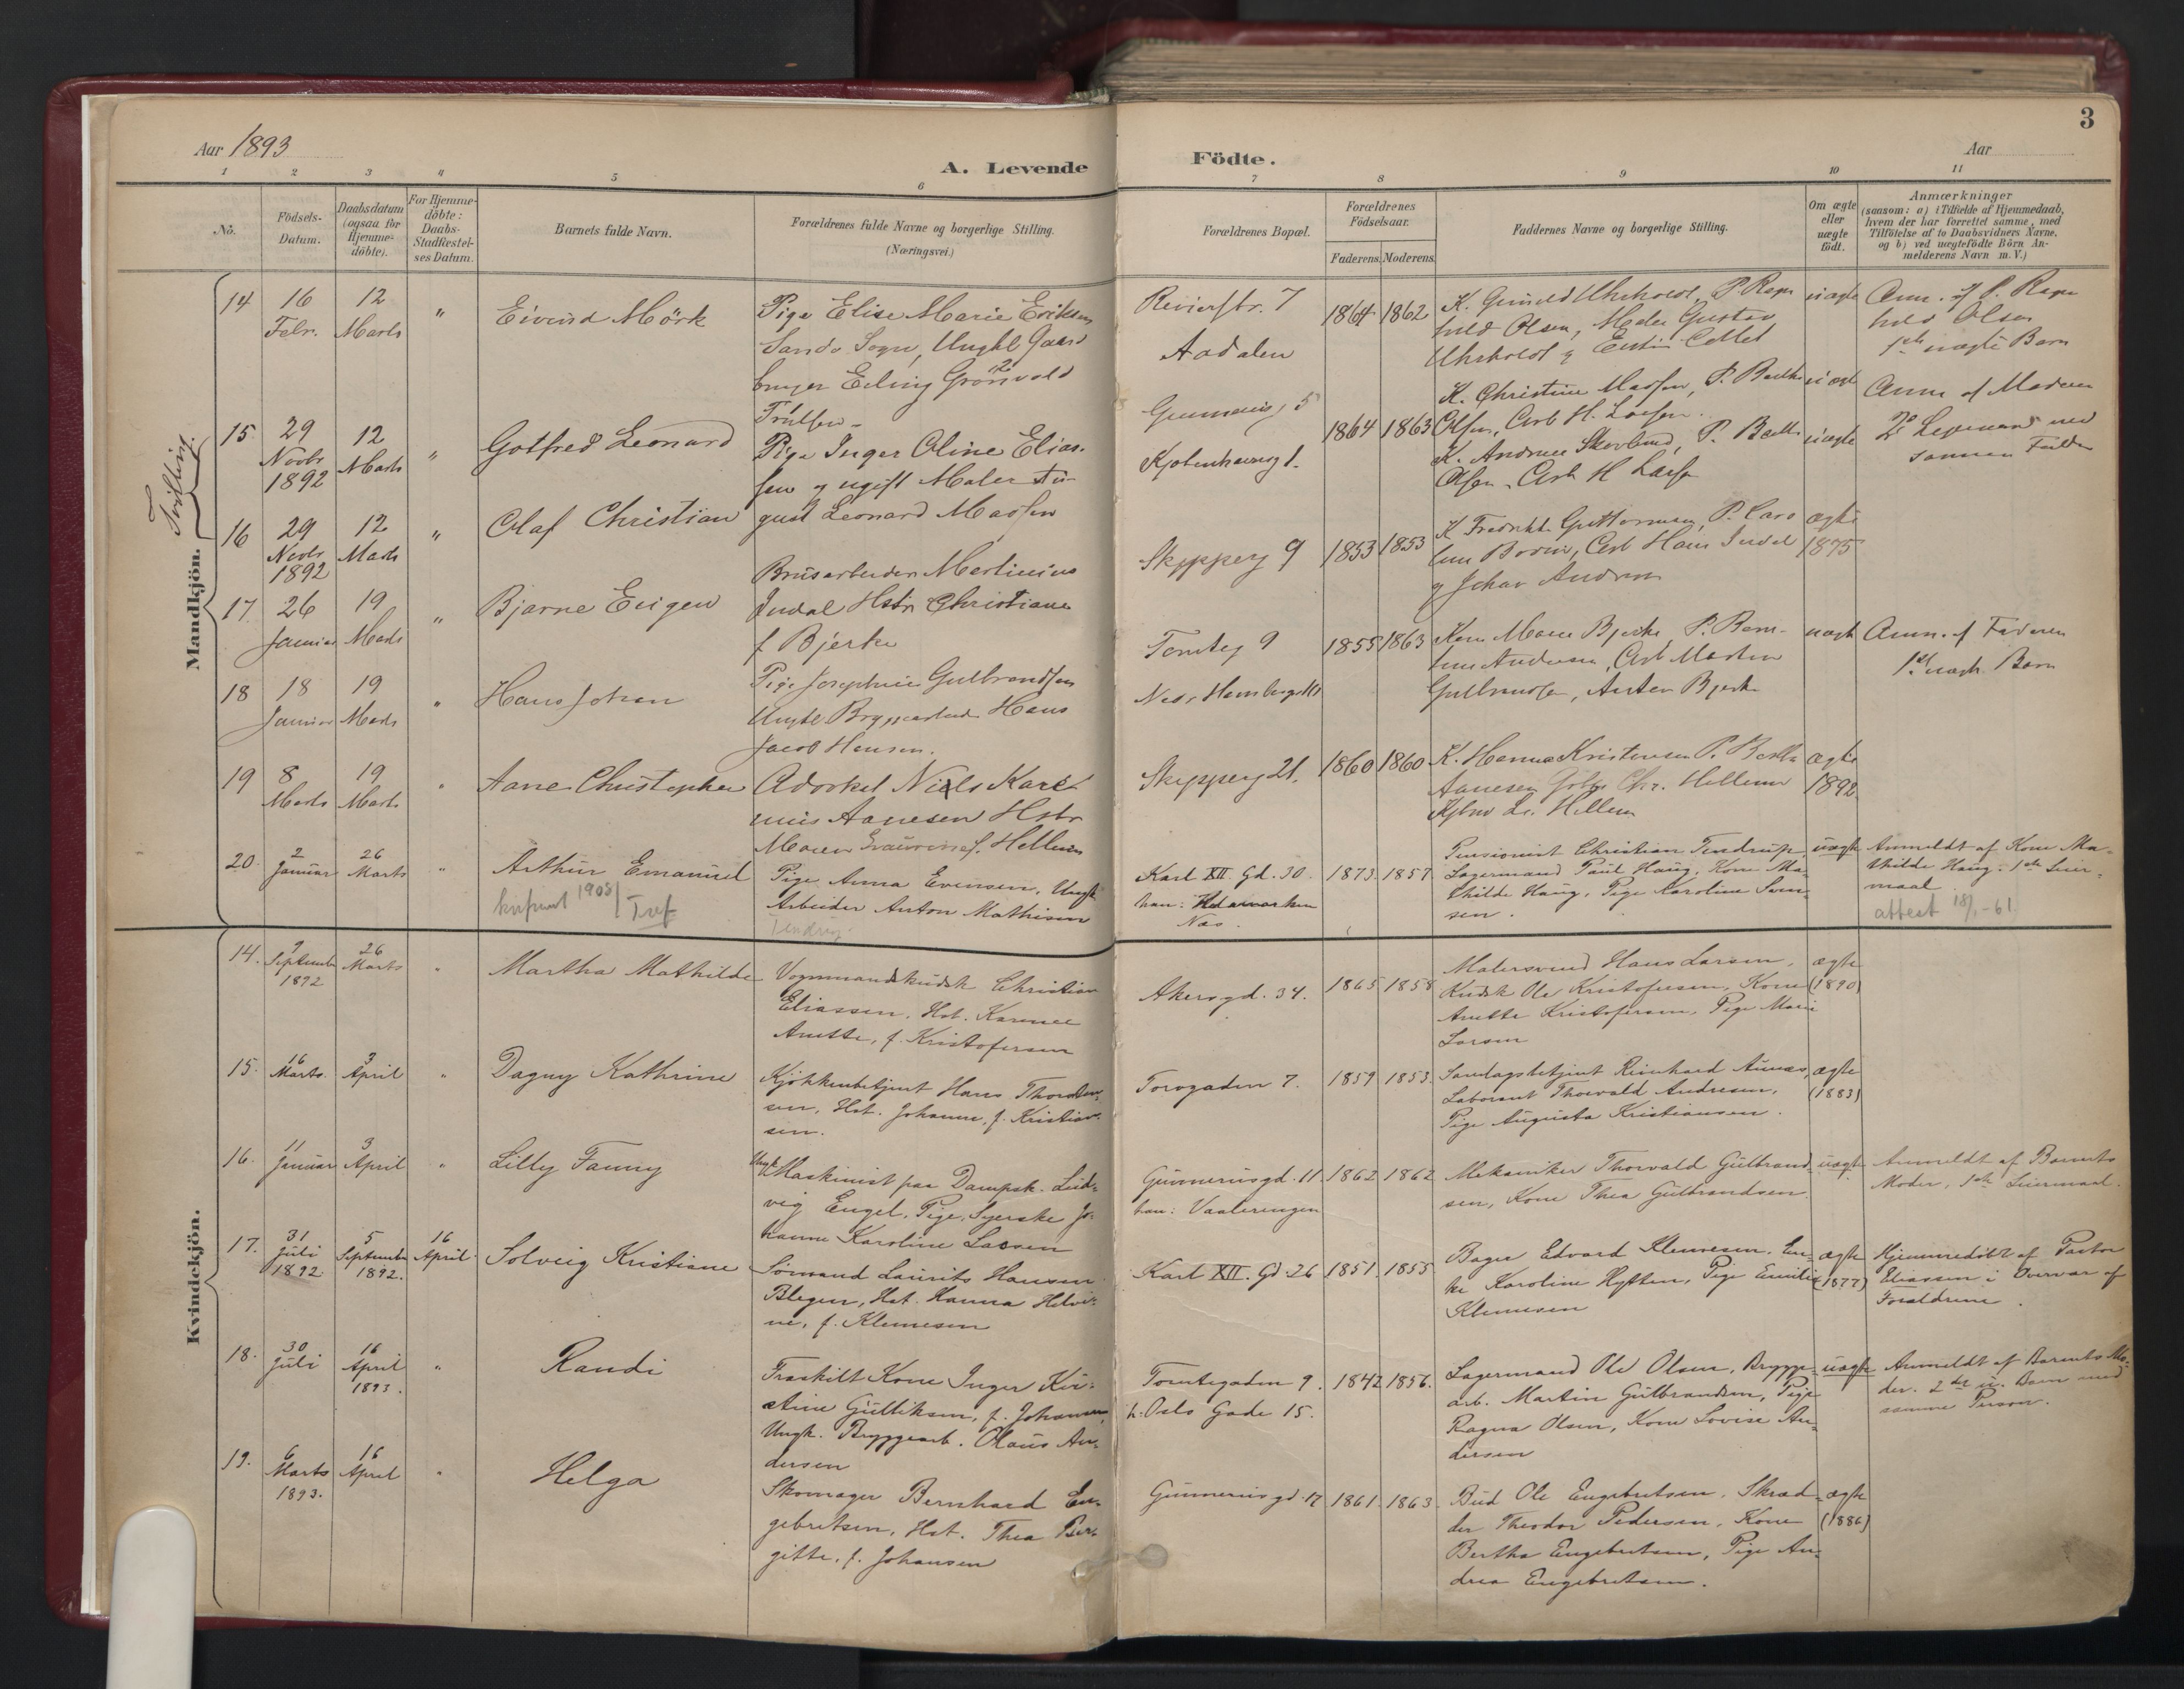 3
Aar 1893
A. Levende Födte.
Aar
1 2 3 4 5 6 7 8 9 10 11
No.
Födsels-
Datum.
Daabsdatum
(ogsaa for
Hjemme-
döbte).
For Hjemme-
döbte:
Daabs-
Stadfæstel-
ses Datum.
Barnets fulde Navn.
Forældrenes fulde Navne og borgerlige Stilling.
(Næringsvei.)
Forældrenes Bopæl.
Forældrenes
Födselsaar.
Faderens. Moderens.
Faddernes Navne og borgerlige Stilling.
Om ægte
eller
uægte
födt.
Anmærkninger
(saasom: a) i Tilfælde af Hjemmedaab,
hvem der har forrettet samme, med
Tilföielse af to Daabsvidners Navne,
og b) ved uægtefödte Börn An-
melderens Navn m. V.)
Mandkjön.
Tvilling.
14
16
Febr.
12
Marts
"
Eivind Mörk
Pige Elise Marie Eriksen
Sando Sogn, Ungkl Gaard
bruger Erling Grönvold
Trulsen
Revierstr. 7
Aadalen
1864 1862
Olsen, Maler Gustav
uægte
Anm. af P. Ragn
hild Olsen
1ste uægte Barn
15
29
Novbr
1892
12
Marts
"
Gotfred Leonard
Pige Inger Oline Elias-
sen og ugift Maler Au-
gust Leonard Madsen
5
Kjøbenhavng 1.
1864 1863
K. Christine Madsen, P. Berthe
Olsen, Arb H. Larsen.
uægte
Anm af Moderen
2det Leiermaal med
samme Fader
16
29
Novbr
1892
12
Marts
"
Olaf Christian
K. Andrea Skovlund, P. Berthe
Olsen, Arb H Larsen
uægte
17
26
Januar
19
Marts
"
Bjarne Eugen
Brusarbeider Martinius
Indal Hstr Christiane
f Bjerke
Skipperg 9
1853 1853
K Fredrikke Guttormsen, P. Caro
line Arb Hans Indal
og Johan Andersen
ægte
1875
18
18
Januar
19
Marts
"
Hans Johan
Pige Josephine Gulbrandsen
Ungkl Bryggearbeid Hans
Jacob Hansen.
Tomteg 9
1855 1863
Kone Maren Bjerke, P. Bern-
tine Andersen, Arb Martin
Gulbrandsen, Anton Bjerke
uægte
Anm. af Faderen
1ste uægte Barn
19
8
Marts
19
Marts
"
Aane Christopher
Advokat Niels Kare-
nius Aanesen Hstr
Maren f. Hellum
Skipperg 21.
1860 1860
K. Hanna Kristensen P. Berthe
Aanesen Chr. Hellum
Kjbm L. Hellum
ægte
1892
20
2
Januar
26
Marts
"
Arthur Emanuel
1905
Pige Anna Evensen, Ungk.
Arbeider Anton Mathisen
Tendrup.
Karl XII. Gd. 30.
han: Hedemarken
Næs.
1873. 1857
Pensionist Christian Tendrup,
Lagermand Paul Haug, Kone Ma-
thilde Haug, Pige Karoline Svend-
sen.
uægte
Anmeldt af Kone Ma-
thilde Haug. 1ste Leier-
maal
attest 18/1-61
Kvindekjön.
14.
7
Septembr
1892
26
Marts
"
Martha Mathilde
Vognmandskudsk Christian
Eliassen, Hst. Karence
Anette, f. Kristofersen
Akersgd. 34.
1865 1858
Malersvend Hans Larsen,
Kudsk Ole Kristofersen, Kone
Anette Kristofersen, Pige Marie
Larsen
ægte
(1890)
15.
16
Marts
3
April
"
Dagny Kathrine
Kjökkenbetjent Hans Thorsten-
sen, Hst. Johanne, f. Kristian-
sen.
Torvgaden 7.
1859 1853.
Reinhard Aunæs,
Laborant Thorvald Andresen,
Pige Augusta Kristiansen.
ægte
(1883)
16.
11
Januar
3
April
"
Lilly Fanny
Ungk. Maskinist paa Dampsk. Lud-
vig Engel, Pige, Syerske Jo-
hanne Karoline Larsen
Gunnerusgd. 11.
han: Vaalerengen
1862 1862
Mekaniker Thorvald Gulbrand-
sen, Kone Thea Gulbrandsen.
uægte
Anmeldt af Barnets
Moder, 1ste Leiermaal.
17.
31
Juli
1892
5
Septembr
1892.
16
April
Solveig Kristiane
Sömand Laurits Hansen
Blegen, Hst. Hanna Helvi-
ne, f. Klemesen
Karl XII. Gd 26
1851. 1855
Bager Edvard Klemesen, En-
ke Karoline Hytten, Pige Emilie
Klemesen
ægte
(1877)
Hjemmedöbt af Pastor
Eliassen i Overvær af
Forældrene.
18.
30
Juli
16
April
1893.
"
Randi
Fraskilt Kone Inger Kri-
stine Gulliksen, f. Johansen,
Ungk. Bryggearb. Olaus An-
dersen
Tomtegaden 9.
h. Oslo Gade 15.
1842 1856.
Lagermand Ole Olsen, Brygge-
arb. Martin Gulbrandsen, Pige
Ragna Olsen, Kone Lovise An-
dersen
uægte
Anmeldt af Barnets Mo-
der. 2det u. Barn med
samme Person.
19.
6
Marts
1893.
16
April
"
Helga
Skomager Bernhard En-
gebretsen, Hst. Thea Ber-
gitte, f. Johansen
Gunnerusgd. 17
1861. 1863
Bud Ole Engebretsen, Skræd-
der Theodor Pedersen, Kone
Bertha Engebretsen, Pige An-
drea Engebretsen.
ægte
(1886)